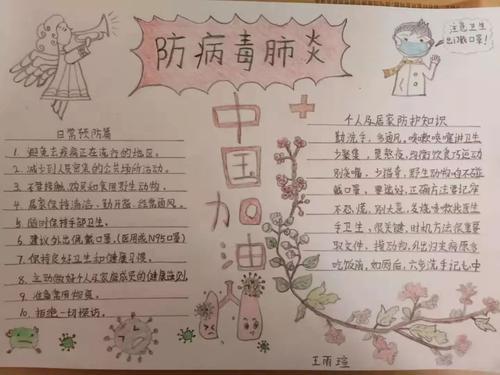 防病毒肺炎
注意卫生
出门戴口罩!
中国加油
日常预防篇
1、避免去疾病正在流行的地区。
2、减少到人员密集的公共场所活动。
3、不要接触、购买和食用野生动物。
4、居家保持清洁,勤开窗,经常通风。
5、随时保持手部卫生。
6、建议外出佩戴口罩(医用或N95口罩)
7、保持良好卫生和健康习惯。
8、主动做好个人及家庭成员的健康监测
9、准备常用物资。
10、拒绝一切探访。
个人及居家防护知识
勤洗手,多通风,咳嗽喷嚏讲卫生
少聚集,莫熬夜,均衡饮食巧运动
别尖嘴,少猎奇,野生动物不能碰
戴口罩,要选好,正确方法要记牢
不恐慌,别大意,发烧咳嗽找医生
手卫生,很关键,时机方法很重要
取文件,接动物,外出归来病原多
吃饭前,如厕后,六步洗手记心中
王雨瑄